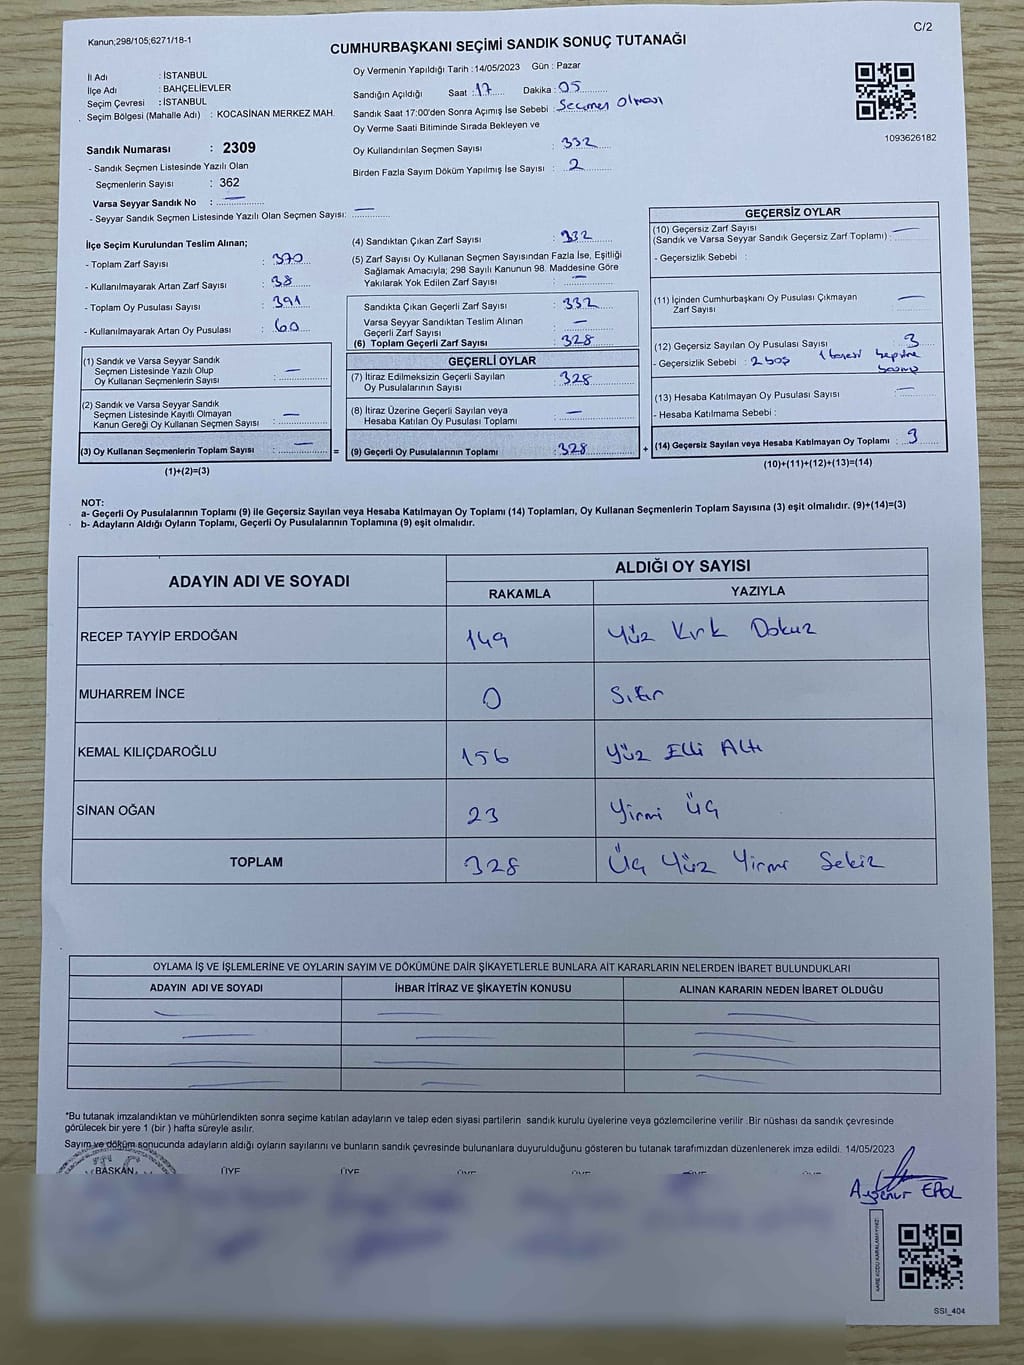 Kanun;298/105;6271/18-1
C/2
CUMHURBAŞKANI SEÇİMİ SANDIK SONUÇ TUTANAĞI
İl Adı : İSTANBUL
İlçe Adı : BAHÇELİEVLER
Seçim Çevresi : İSTANBUL
Seçim Bölgesi (Mahalle Adı) : KOCASİNAN MERKEZ MAH.
Sandık Numarası : 2309
- Sandık Seçmen Listesinde Yazılı Olan
Seçmenlerin Sayısı : 362
Varsa Seyyar Sandık No : —
- Seyyar Sandık Seçmen Listesinde Yazılı Olan Seçmen Sayısı: —
Oy Vermenin Yapıldığı Tarih :14/05/2023 Gün : Pazar
Sandığın Açıldığı Saat : 17 Dakika : 05
Sandık Saat 17:00'den Sonra Açımış İse Sebebi : Seçmen Olması
Oy Verme Saati Bitiminde Sırada Bekleyen ve
Oy Kullandırılan Seçmen Sayısı : 332
Birden Fazla Sayım Döküm Yapılmış İse Sayısı : 2
1093626182
İlçe Seçim Kurulundan Teslim Alınan;
- Toplam Zarf Sayısı : 370
- Kullanılmayarak Artan Zarf Sayısı : 38
- Toplam Oy Pusulası Sayısı : 391
- Kullanılmayarak Artan Oy Pusulası : 60
(1) Sandık ve Varsa Seyyar Sandık
Seçmen Listesinde Yazılı Olup
Oy Kullanan Seçmenlerin Sayısı : —
(2) Sandık ve Varsa Seyyar Sandık
Seçmen Listesinde Kayıtlı Olmayan
Kanun Gereği Oy Kullanan Seçmen Sayısı : —
(3) Oy Kullanan Seçmenlerin Toplam Sayısı : —
(1)+(2)=(3)
(4) Sandıktan Çıkan Zarf Sayısı : 332
(5) Zarf Sayısı Oy Kullanan Seçmen Sayısından Fazla İse, Eşitliği
Sağlamak Amacıyla; 298 Sayılı Kanunun 98. Maddesine Göre
Yakılarak Yok Edilen Zarf Sayısı : —
Sandıkta Çıkan Geçerli Zarf Sayısı : 332
Varsa Seyyar Sandıktan Teslim Alınan
Geçerli Zarf Sayısı : —
(6) Toplam Geçerli Zarf Sayısı : 328
GEÇERLİ OYLAR
(7) İtiraz Edilmeksizin Geçerli Sayılan
Oy Pusulalarının Sayısı : 328
(8) İtiraz Üzerine Geçerli Sayılan veya
Hesaba Katılan Oy Pusulası Toplamı : —
= (9) Geçerli Oy Pusulalarının Toplamı : 328
GEÇERSİZ OYLAR
(10) Geçersiz Zarf Sayısı
(Sandık ve Varsa Seyyar Sandık Geçersiz Zarf Toplamı) : —
- Geçersizlik Sebebi :
(11) İçinden Cumhurbaşkanı Oy Pusulası Çıkmayan
Zarf Sayısı —
(12) Geçersiz Sayılan Oy Pusulası Sayısı : 3
- Geçersizlik Sebebi : 2 boş 1 hepsine
(13) Hesaba Katılmayan Oy Pusulası Sayısı : —
- Hesaba Katılmama Sebebi :
+ (14) Geçersiz Sayılan veya Hesaba Katılmayan Oy Toplamı : 3
(10)+(11)+(12)+(13)=(14)
NOT:
a- Geçerli Oy Pusulalarının Toplamı (9) ile Geçersiz Sayılan veya Hesaba Katılmayan Oy Toplamı (14) Toplamları, Oy Kullanan Seçmenlerin Toplam Sayısına (3) eşit olmalıdır. (9)+(14)=(3)
b- Adayların Aldığı Oyların Toplamı, Geçerli Oy Pusulalarının Toplamına (9) eşit olmalıdır.
ADAYIN ADI VE SOYADI
ALDIĞI OY SAYISI
RAKAMLA YAZIYLA
RECEP TAYYİP ERDOĞAN 149 Yüz Kırk Dokuz
MUHARREM İNCE 0 Sıfır
KEMAL KILIÇDAROĞLU 156 Yüz Elli Altı
SİNAN OĞAN 23 Yirmi Üç
TOPLAM 328 Üç Yüz Yirmi Sekiz
OYLAMA İŞ VE İŞLEMLERİNE VE OYLARIN SAYIM VE DÖKÜMÜNE DAİR ŞİKAYETLERLE BUNLARA AİT KARARLARIN NELERDEN İBARET BULUNDUKLARI
ADAYIN ADI VE SOYADI İHBAR İTİRAZ VE ŞİKAYETİN KONUSU ALINAN KARARIN NEDEN İBARET OLDUĞU
*Bu tutanak imzalandıktan ve mühürlendikten sonra seçime katılan adayların ve talep eden siyasi partilerin sandık kurulu üyelerine veya gözlemcilerine verilir. Bir nüshası da sandık çevresinde
görülecek bir yere 1 (bir ) hafta süreyle asılır.
Sayım ve döküm sonucunda adayların aldığı oyların sayılarını ve bunların sandık çevresinde bulunanlara duyurulduğunu gösteren bu tutanak tarafımızdan düzenlenerek imza edildi. 14/05/2023
BAŞKAN ÜYE ÜYE ÜYE ÜYE
Ayşenur EROL
KARE KODU KARALAMAYINIZ!
SSI_404